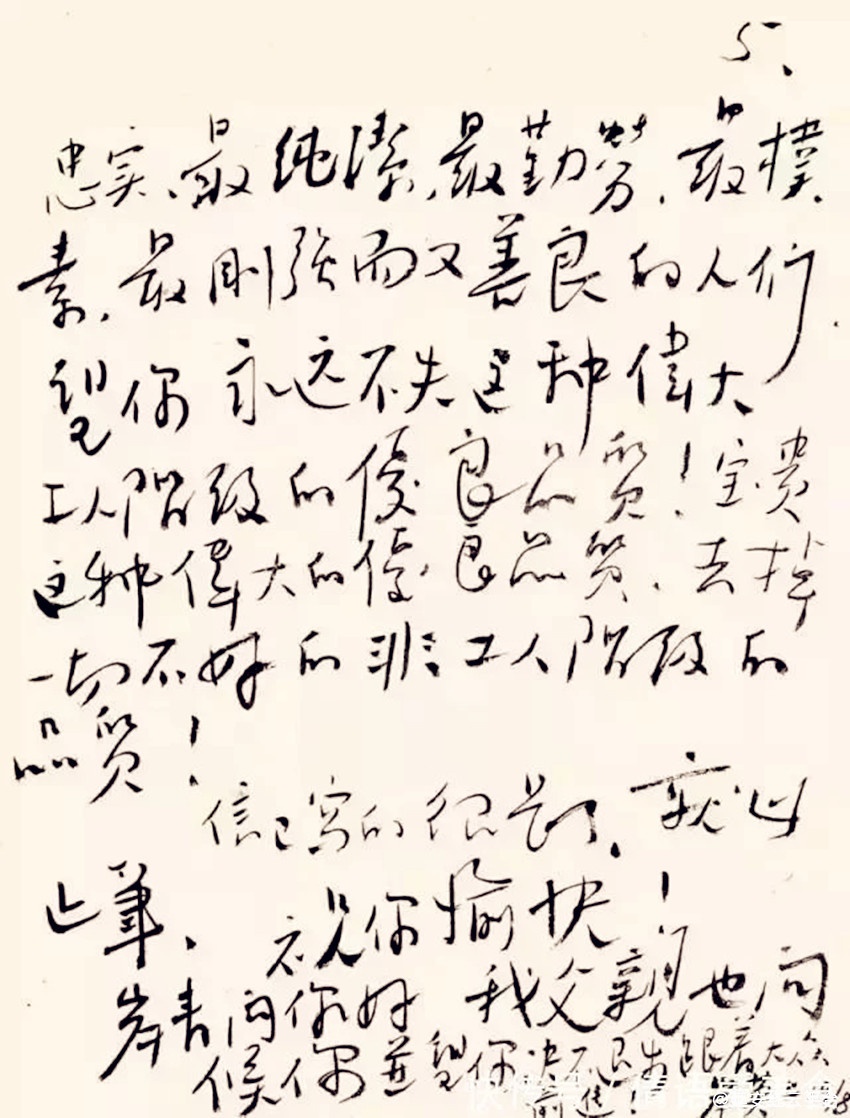 5、
忠实、最纯潔、最勤劳、最樸
素、最刚强而又善良的人们
望你永远不失这种偉大
工人阶级的優良品质!宝贵
这种偉大的優良品质、去掉
一切不好的非工人阶级的
品质!
信已写的很長了、就此
止筆、祝你愉快!
岸青问你好 我父親也问
候你並望你决不 跟着大众
前进!